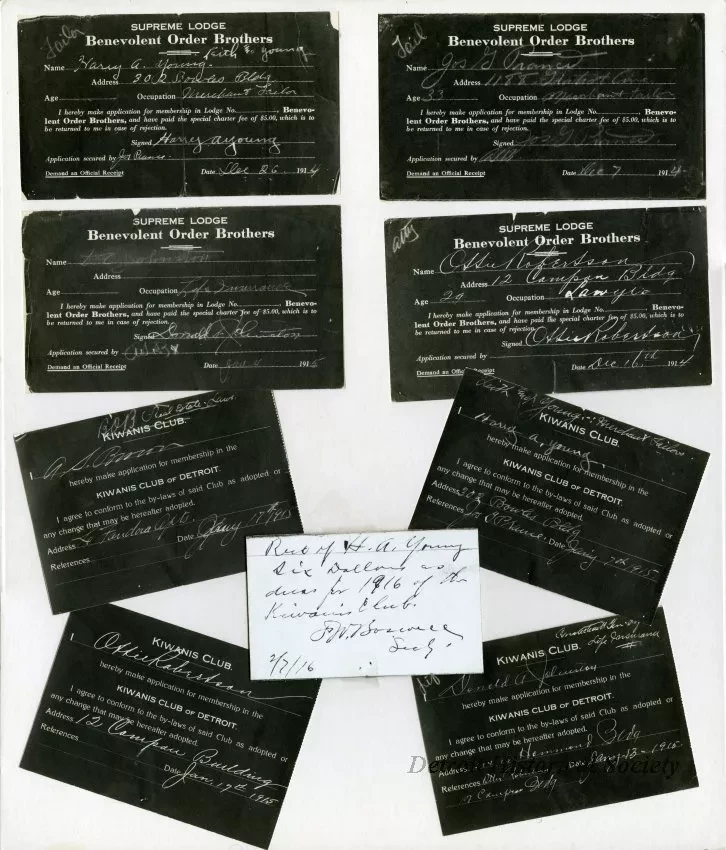 Tailor
SUPREME LODGE
Benevolent Order Brothers
Name Harry A. Young
Address 302 Bowles Bldg
Age Occupation Merchant Tailor
I hereby make application for membership in Lodge No. Benevo-
lent Order Brothers, and have paid the special charter fee of $5.00, which is to
be returned to me in case of rejection.
Signed Harry A Young
Application secured by
Demand an Official Receipt Date Dec 26 1914
SUPREME LODGE
Benevolent Order Brothers
Name Jos G
Address
Age 33 Occupation Merchant Tailor
I hereby make application for membership in Lodge No. Benevo-
lent Order Brothers, and have paid the special charter fee of $5.00, which is to
be returned to me in case of rejection.
Signed
Application secured by
Demand an Official Receipt Date Dec 7 1914
SUPREME LODGE
Benevolent Order Brothers
Name
Address
Age Occupation Life Insurance
I hereby make application for membership in Lodge No. Benevo-
lent Order Brothers, and have paid the special charter fee of $5.00, which is to
be returned to me in case of rejection.
Signed Donald A Johnston
Application secured by
Demand an Official Receipt Date 191
atty
SUPREME LODGE
Benevolent Order Brothers
Name Ottie Robertson
Address 12 Campau Bldg
Age 29 Occupation Lawyer
I hereby make application for membership in Lodge No. Benevo-
lent Order Brothers, and have paid the special charter fee of $5.00, which is to
be returned to me in case of rejection.
Signed Ottie Robertson
Application secured by
Demand an Official Receipt Date Dec 16th 1914
Real Estate
KIWANIS CLUB.
I A. S. Brown
hereby make application for membership in the
KIWANIS CLUB of DETROIT.
I agree to conform to the by-laws of said Club as adopted or
any change that may be hereafter adopted.
Address Date Jany 17th 1915
References
Merchant Tailor
KIWANIS CLUB.
I Harry A. Young
hereby make application for membership in the
KIWANIS CLUB of DETROIT.
I agree to conform to the by-laws of said Club as adopted or
any change that may be hereafter adopted.
Address 302 Bowles Bldg
References Date Jany 7th 1915
Recd of H. A. Young
Six Dollars as
dues for 1916 of the
Kiwanis Club.
Secy.
2/7/16
KIWANIS CLUB.
I Ottie Robertson
hereby make application for membership in the
KIWANIS CLUB of DETROIT.
I agree to conform to the by-laws of said Club as adopted or
any change that may be hereafter adopted.
Address 12 Campau Building
References Date Jan. 17th 1915
Life Insurance
KIWANIS CLUB.
I Donald A Johnston
hereby make application for membership in the
KIWANIS CLUB of DETROIT.
I agree to conform to the by-laws of said Club as adopted or
any change that may be hereafter adopted.
Address Hammond Bldg
Date Jany 13-1915
References
Campau Bldg
Detroit Historical Society